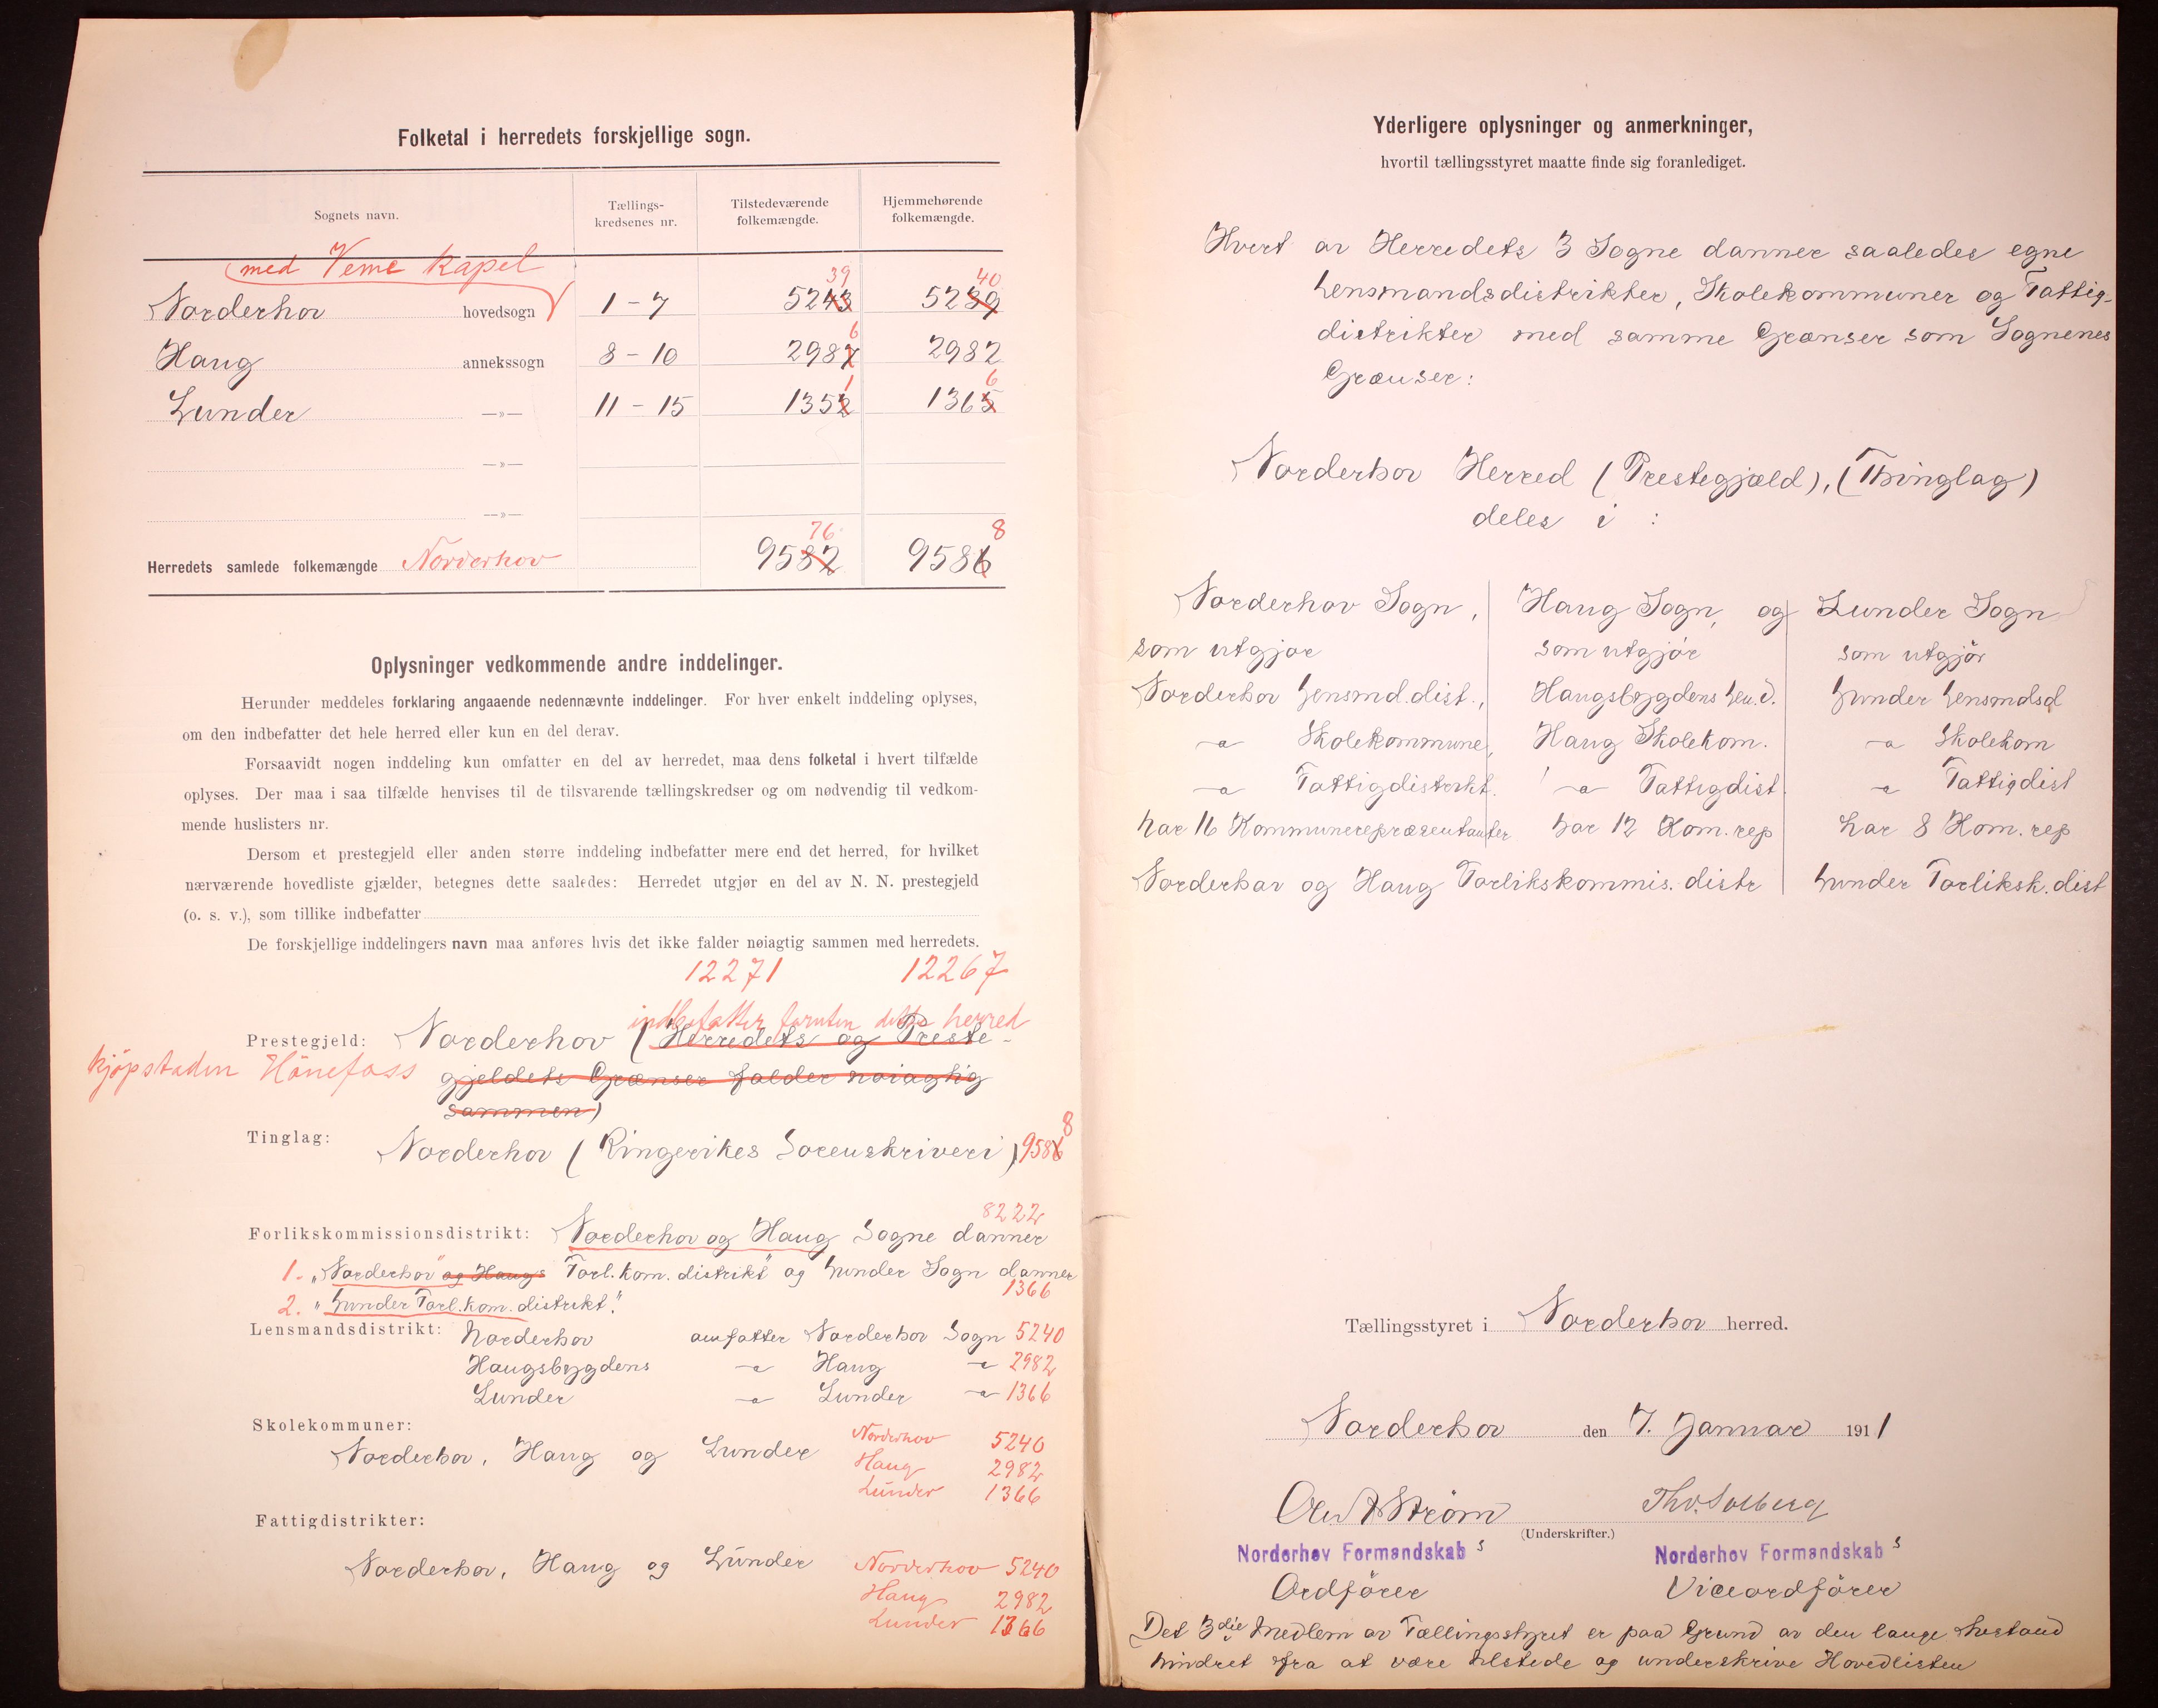 Folketal i herredets forskjellige sogn.
Sognets navn.
Tællings-
kredsenes nr.
Tilstedeværende
folkemængde.
Hjemmehørende
folkemængde.
(med Veme kapel
39 40
Norderhov hovedsogn 1 - 7 5243 5239
6
Haug annekssogn 8 - 10 2987 2982
1 6
Lunder —»— 11 - 15 1352 1365
—»—
—»—
76 8
Herredets samlede folkemængde Norderhov 9582 9586
Oplysninger vedkommende andre inddelinger.
Herunder meddeles forklaring angaaende nedennævnte inddelinger. For hver enkelt inddeling oplyses,
om den indbefatter det hele herred eller kun en del derav.
Forsaavidt nogen inddeling kun omfatter en del av herredet, maa dens folketal i hvert tilfælde
oplyses. Der maa i saa tilfælde henvises til de tilsvarende tællingskredser og om nødvendig til vedkom-
mende huslisters nr.
Dersom et prestegjeld eller anden større inddeling indbefatter mere end det herred, for hvilket
nærværende hovedliste gjælder, betegnes dette saaledes: Herredet utgjør en del av N. N. prestegjeld
(o. s. v.), som tillike indbefatter
De forskjellige inddelingers navn maa anføres hvis det ikke falder nøiagtig sammen med herredets.
12271 12267
indbefatter foruten dette herred
Prestegjeld: Norderhov (Herredets og Preste-
kjøpstaden Hönefoss gjeldets Grænser falder nöiagtig
sammen)
8
Tinglag: Norderhov (Ringerikes Sorenskriveri) 9586
8222
Forlikskommissionsdistrikt: Norderhov og Haug Sogne danner
1. „Norderhov" og Haugs Forl. kom. distrikt" og Lunder Sogn danner
1366
2. "Lunder Forl. kom. distrikt".
Lensmandsdistrikt: Norderhov omfatter Norderhov Sogn 5240
Haugsbygdens —"— Haug —"— 2982
Lunder —"— Lunder —"— 1366
Skolekommuner:
Norderhov, Haug og Lunder
Norderhov 5240
Haug 2982
Lunder 1366
Fattigdistrikter:
Norderhov, Haug og Lunder
Norderhov 5240
Haug 2982
Lunder 1366
Yderligere oplysninger og anmerkninger,
hvortil tællingsstyret maatte finde sig foranlediget.
Hvert av Herredets 3 Sogne danner saaledes egne
Lensmandsdistrikter, Skolekommuner og Fattig-
distrikter med samme Grænser som Sognenes
Grænser:
Norderhov Herred (Prestegjæld), (Thinglag)
deles i :
Norderhov Sogn, Haug Sogn, og Lunder Sogn
som utgjør som utgjör som utgjör
Norderhov Lensmd. dist., Haugsbygdens Len. d. Lunder Lensmdsd
—"— Skolekommune, Haug Skolekom. —"— Skolekom
—"— Fattigdistrikt. —"— Fattigdist. —"— Fattigdist
har 16 Kommunerepræsentanter har 12 Kom. rep har 8 Kom. rep
Norderhov og Haug Forlikskommis. distr Lunder Forliksk. dist
Tællingsstyret i Norderhov herred.
Norderhov den 7. Januar 1911
Strøm Thv. Solberg
(Underskrifter.)
Norderhov Formandskab s Norderhov Formandskab s
Ordförer Viceordförer
Det 3die Medlem av Tællingsstyret er paa Grund av den lange Avstand
hindret fra at være tilstede og underskrive Hovedlisten